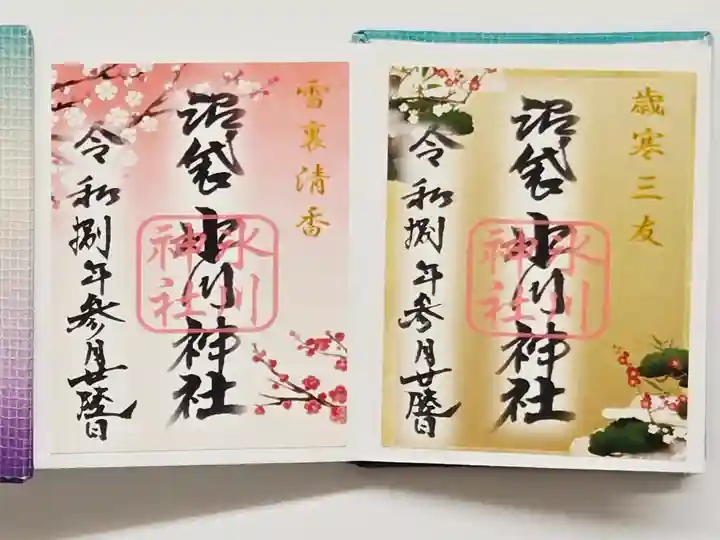 雪裏清香
沼袋氷川神社
氷川神社
令和捌年参月廿日
歳寒三友
沼袋氷川神社
氷川神社
令和捌年参月廿日